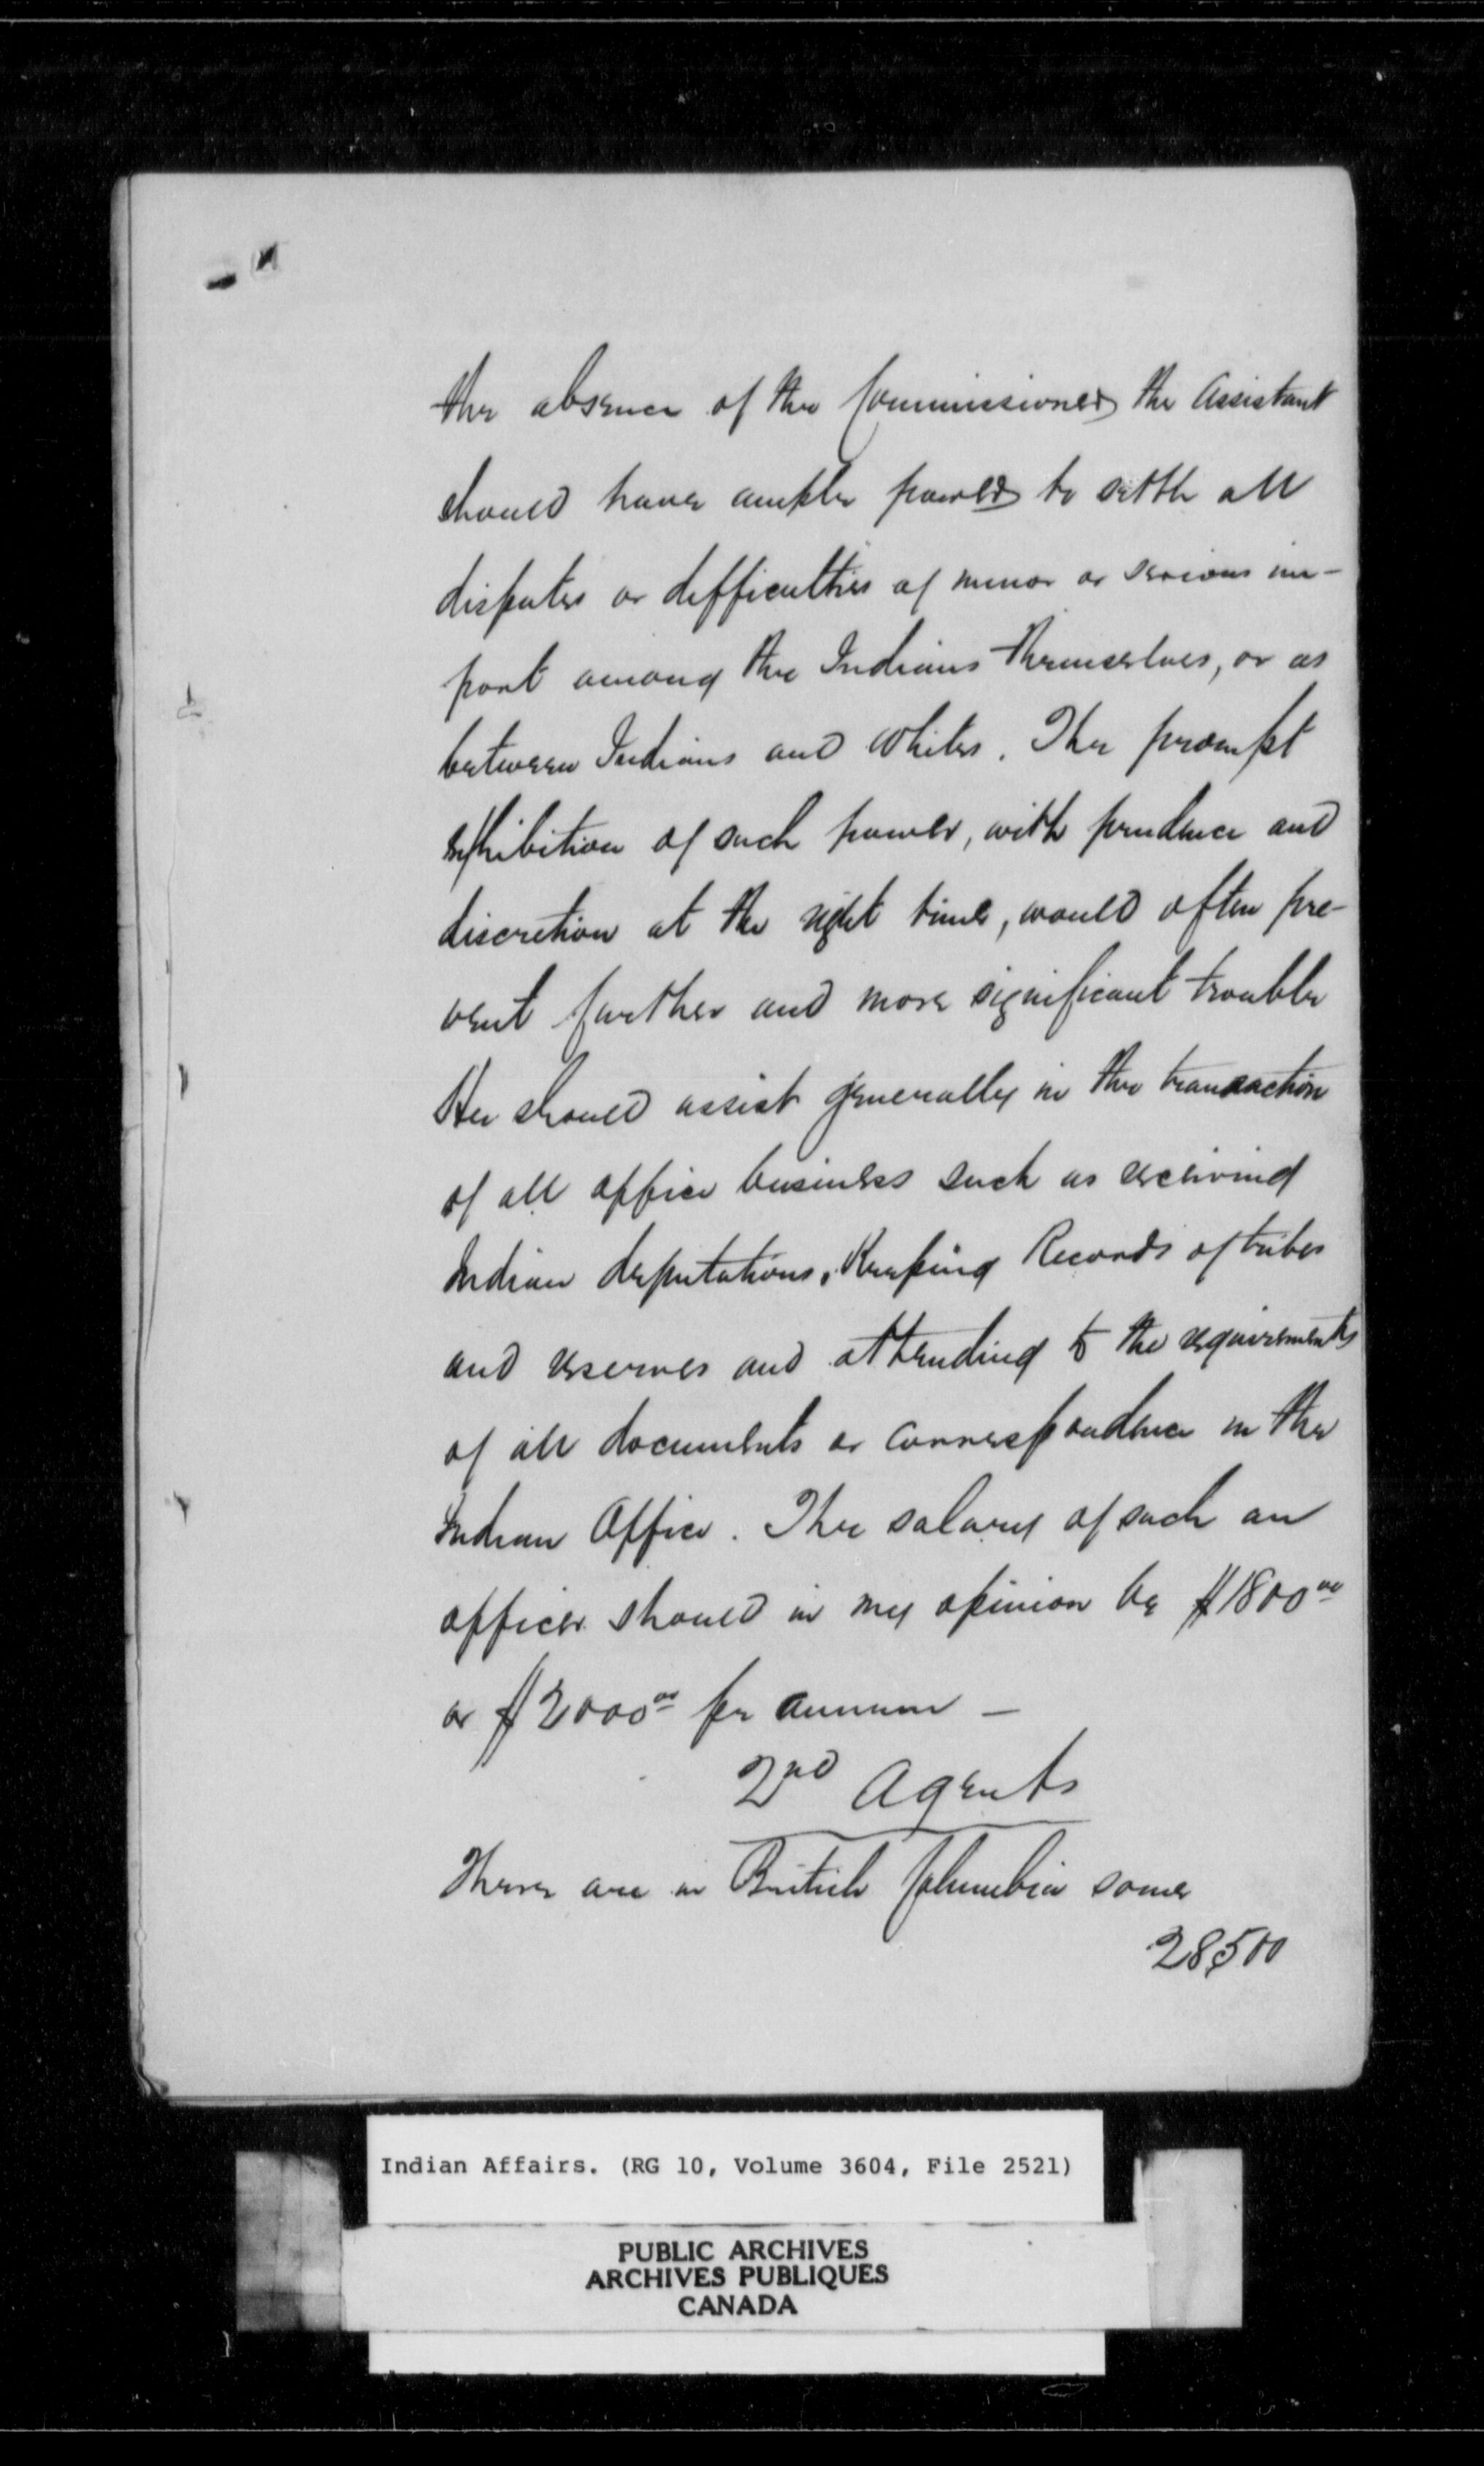 the absence of the Commissioner the Assistant
should have ample power to settle all
disputes or difficulties of minor or serious im-
port among the Indians themselves, or as
between Indians and Whites. The prompt
exhibition of such power, with prudence and
discretion at the right time, would often pre-
vent further and more significant trouble
He should assist generally in the transaction
of all office business such as receiving
Indian deputations, Keeping Records of tribes
and reserves and attending to the requirements
of all documents or correspondence in the
Indian Office. The salary of such an
officer should in my opinion be $1800.00
or $2000.00 per annum —
2nd Agents
There are in British Columbia some
28,500
Indian Affairs. (RG 10, Volume 3604, File 2521)
PUBLIC ARCHIVES
ARCHIVES PUBLIQUES
CANADA